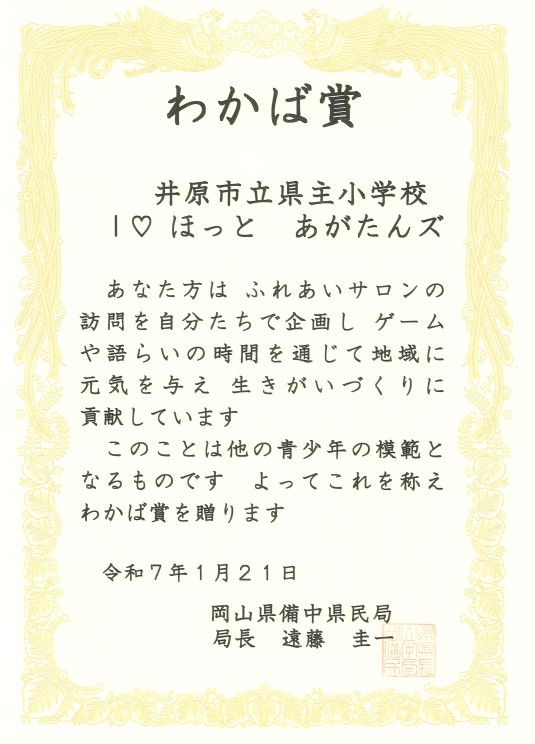 わかば賞
井原市立県主小学校
I♡ ほっと　あがたんズ
あなた方は ふれあいサロンの
訪問を自分たちで企画し ゲーム
や語らいの時間を通じて地域に
元気を与え 生きがいづくりに
貢献しています
このことは他の青少年の模範と
なるものです　よってこれを称え
わかば賞を贈ります
令和７年１月２１日
岡山県備中県民局
局長　遠藤　圭一